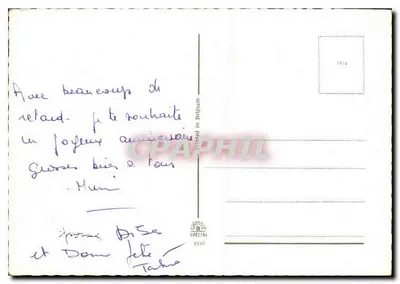 Avec beaucoup de
retard. je te souhaite
un joyeux anniversaire
Grosses bises a tous
Mimi
Bises
et Bonne fête
CPAPHIL
Printed in Belgium
SPECIAL